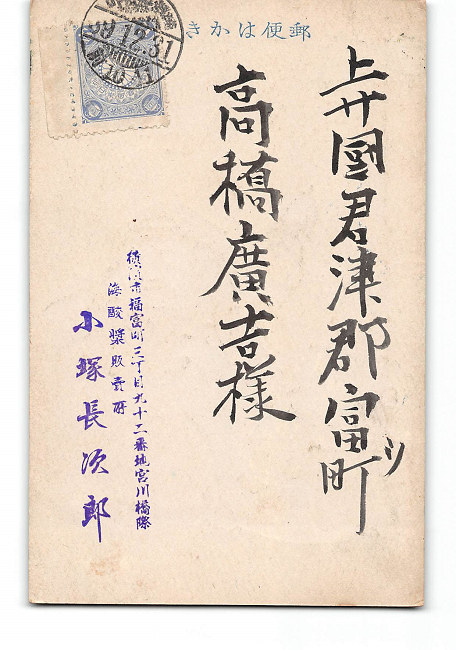 郵便はかき
上総國君津郡富町
高橋廣吉様
横濱市福富町三丁目九十二番地宮川橋際
海酸漿販賣所
小塚長次郎
39.12.31